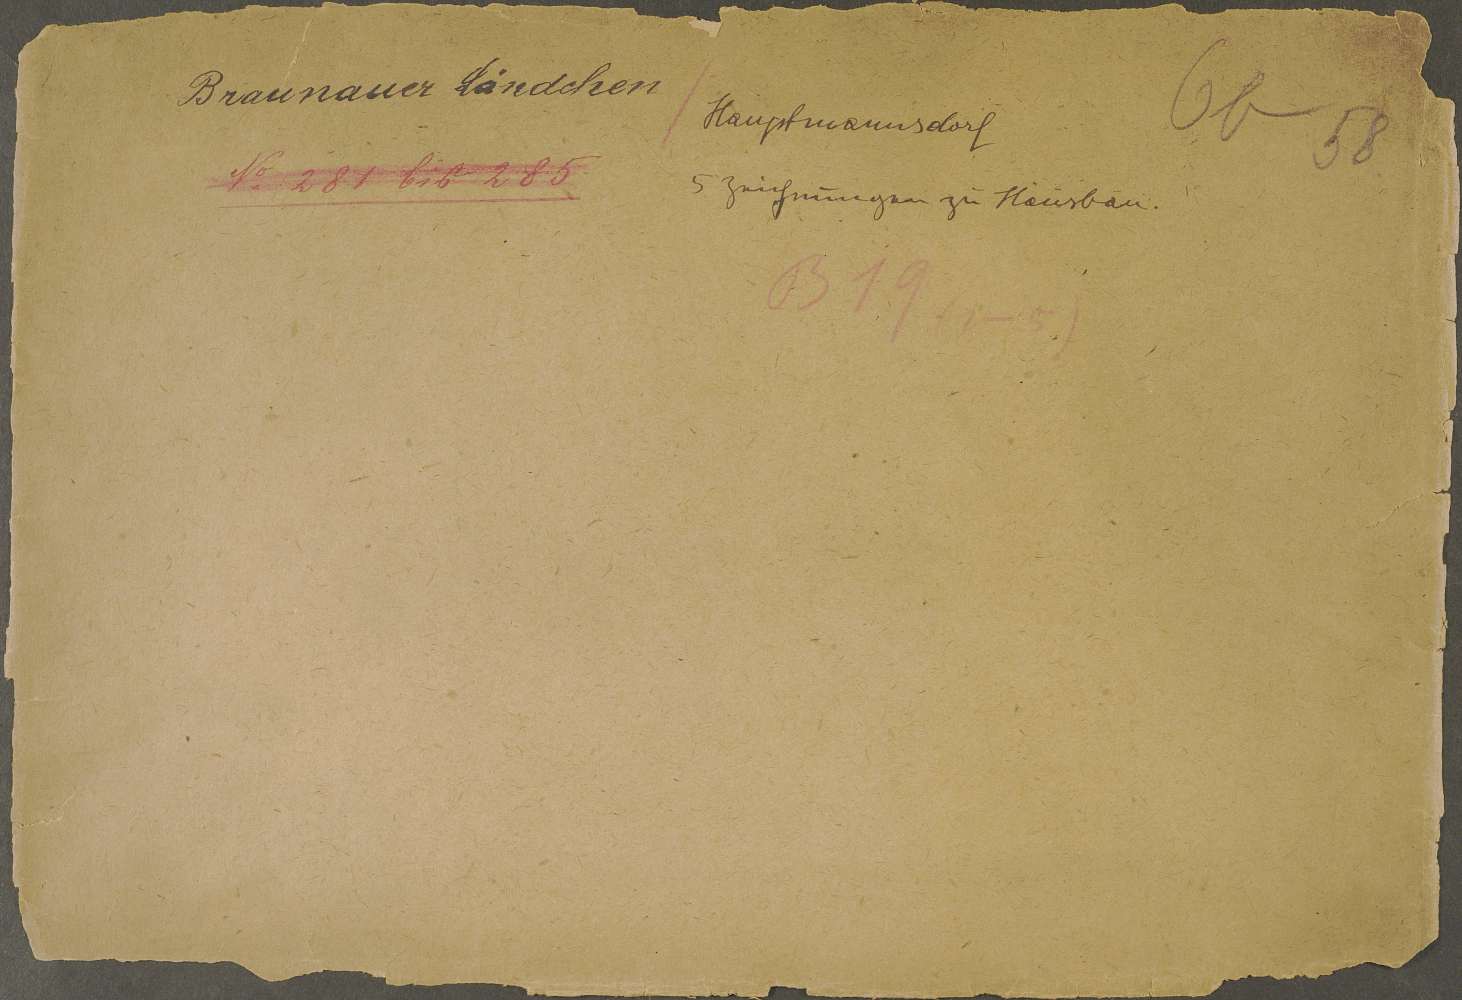 Braunauer Ländchen /
Hauptmannsdorf
6b
58
No 281 bis 285
5 Zeichnungen zu Hausbau.
B 19 (1-5)